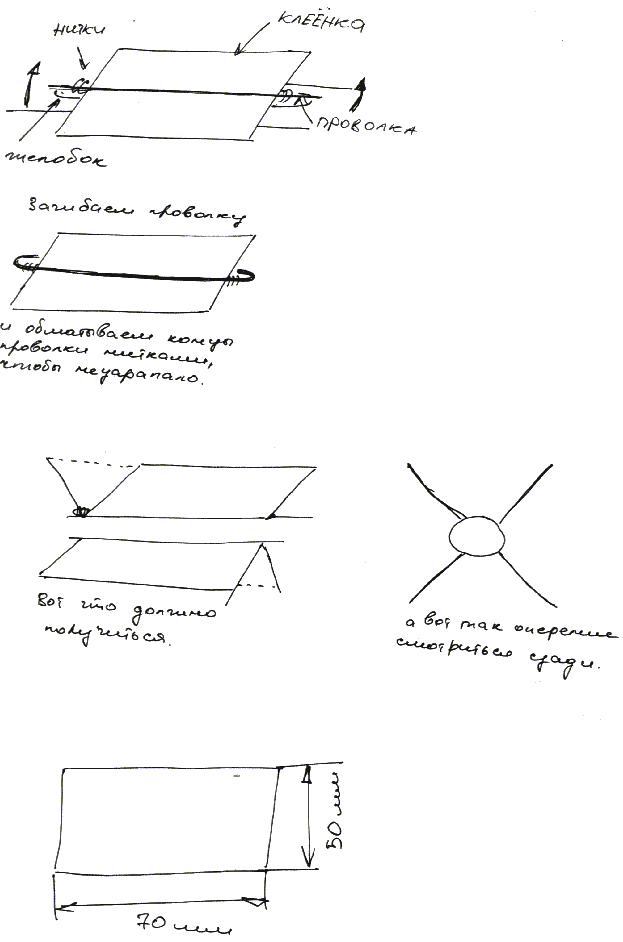 НИТКИ
КЛЕЁНКА
ПРОВОЛКА
желобок
Загибаем проволку
и обматываем концы
проволки нитками,
чтобы нецарапало.
Вот что должно
получиться.
а вот так оперение
смотриться сзади.
50 мм
70 мм